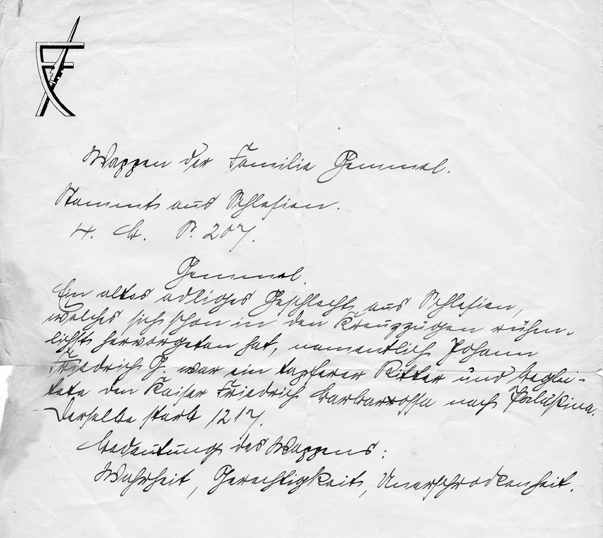 Wappen der Familie Gemmel.
Stammt aus Schlesien.
4. B. S. 207.
Gemmel.
Ein altes adliges Geschlecht aus Schlesien,
welches sich schon in den Kreuzzügen rühm-
lichst hervorgetan hat, namentlich Johann
Friedrich G. war ein tapferer Ritter und beglei-
tete den Kaiser Friedrich Barbarossa nach Palästina.
Derselbe starb 1217.
Bedeutung des Wappens:
Wahrheit, Gerechtigkeit, Unerschrockenheit.